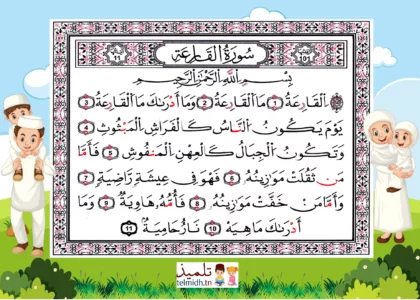 سُورَةُ القَارِعَة
بِسْمِ اللَّهِ الرَّحْمَنِ الرَّحِيمِ
الْقَارِعَةُ 1 مَا الْقَارِعَةُ 2 وَمَا أَدْرَىٰكَ مَا الْقَارِعَةُ 3
يَوْمَ يَكُونُ النَّاسُ كَالْفَرَاشِ الْمَبْثُوثِ 4
وَتَكُونُ الْجِبَالُ كَالْعِهْنِ الْمَنفُوشِ 5 فَأَمَّا
مَن ثَقُلَتْ مَوَٰزِينُهُ 6 فَهُوَ فِي عِيشَةٍ رَّاضِيَةٍ 7
وَأَمَّا مَنْ خَفَّتْ مَوَٰزِينُهُ 8 فَأُمُّهُ هَاوِيَةٌ 9 وَمَا
أَدْرَىٰكَ مَا هِيَهْ 10 نَارٌ حَامِيَةٌ 11
تلميذ
telmidh.tn